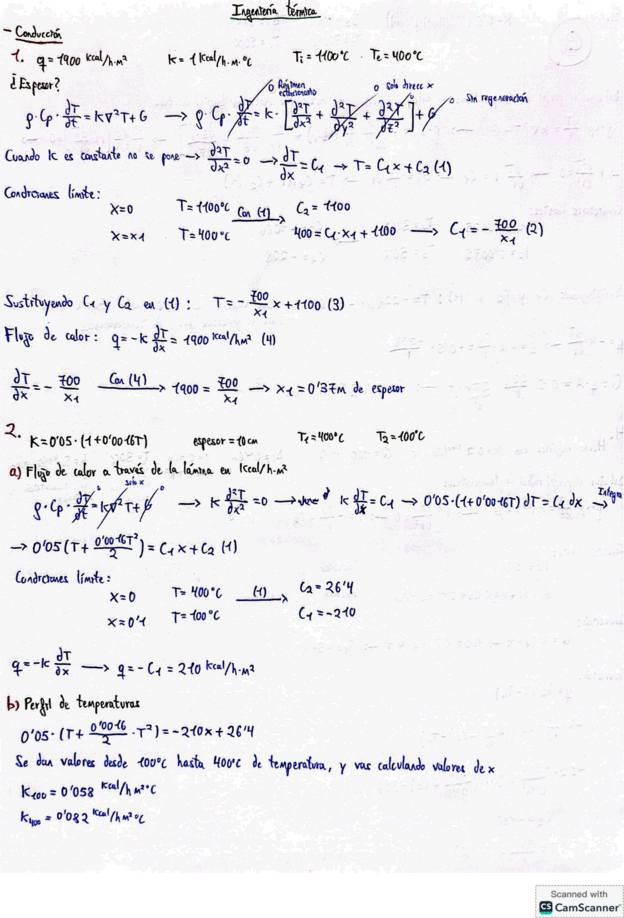 Ingeniería térmica
- Conducción
1. q = 1900 Kcal/h·m² K = 1 Kcal/h·m·°C Ti = 1100°C · Te = 400°C
¿Espesor?
ρ·Cp·∂T/∂t = K∇²T + G → ρ·Cp·∂T/∂t = k·[∂²T/∂x² + ∂²T/∂y² + ∂²T/∂z²] + G 0 Régimen estacionario 0 solo direcc x 0 0 Sin regeneración
Cuando K es constante no se pone → ∂²T/∂x² = 0 → dT/dx = C1 → T = C1x + C2 (1)
Condiciones límite:
X=0 T=1100°C Con (1) → C2 = 1100
X=x1 T=400°C 400 = C1·x1 + 1100 → C1 = -700/x1 (2)
Sustituyendo C1 y C2 en (1): T = -700/x1 x + 1100 (3)
Flujo de calor: q = -K dT/dx = 1900 Kcal/hm² (4)
dT/dx = -700/x1 Con (4) → 1900 = 700/x1 → x1 = 0'37m de espesor
2. K = 0'05·(1+0'0016T) espesor = 10 cm T1 = 400°C T2 = 100°C
a) Flujo de calor a través de la lámina en Kcal/h·m²
ρ·Cp·∂T/∂t = K∇²T + G 0 solo x 0 → K d²T/dx² = 0 → K dT/dx = C1 → 0'05·(1+0'0016T) dT = C1 dx → Integra
→ 0'05(T + 0'0016T²/2) = C1x + C2 (1)
Condiciones límite:
X=0 T=400°C (1) → C2 = 26'4
X=0'1 T=100°C C1 = -210
q = -K dT/dx → q = -C1 = 210 Kcal/h·m²
b) Perfil de temperaturas
0'05·(T + 0'0016/2·T²) = -210x + 26'4
Se dan valores desde 100°C hasta 400°C de temperatura, y vas calculando valores de x
K100 = 0'058 Kcal/h m²°C
K400 = 0'082 Kcal/h m²°C
Scanned with
CS CamScanner